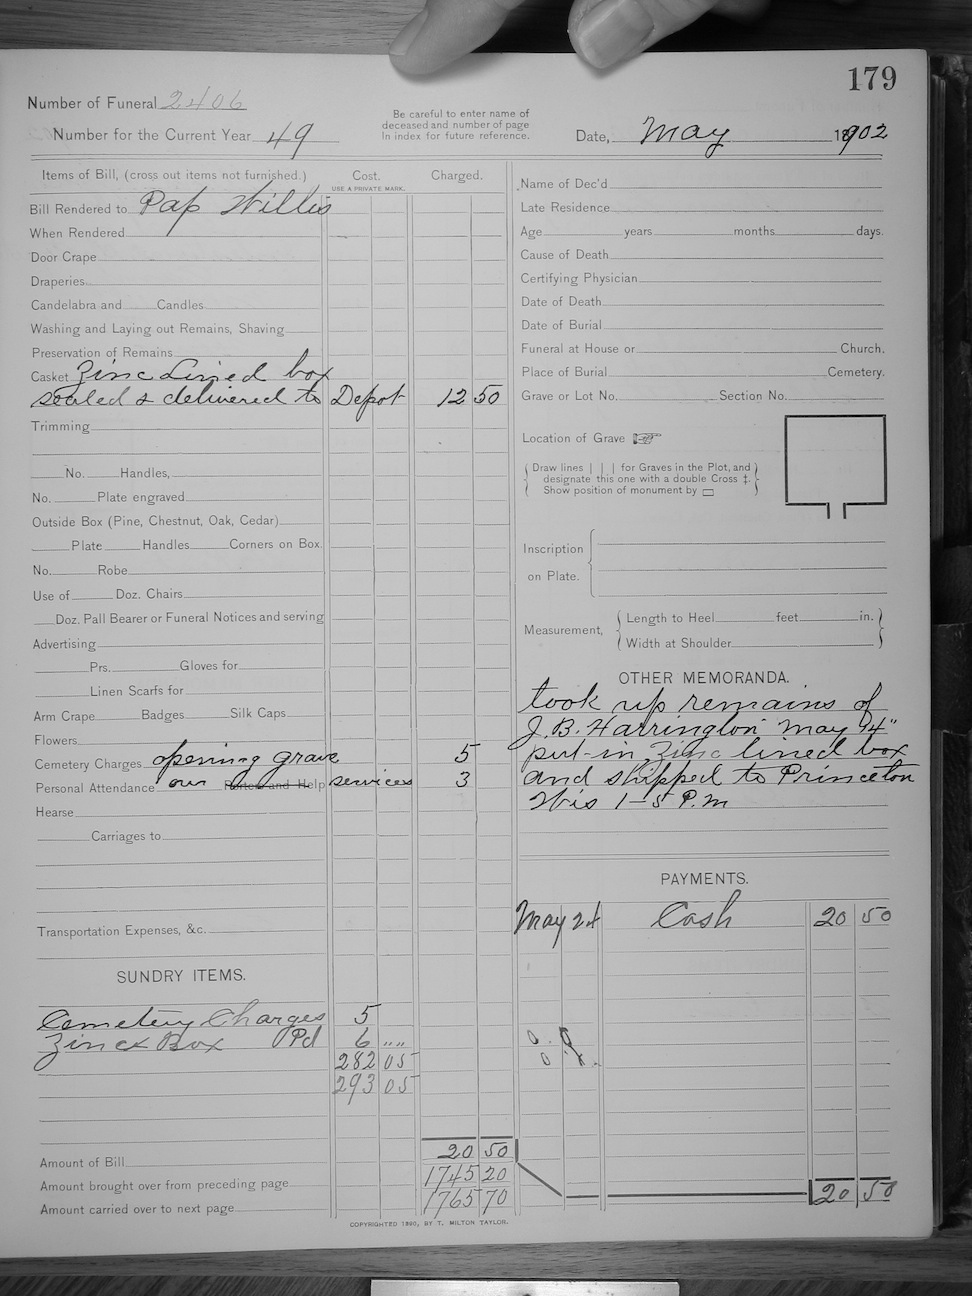 179
Number of Funeral 2406
Number for the Current Year 49
Be careful to enter name of
deceased and number of page
In index for future reference.
Date, May 1902
Items of Bill, (cross out items not furnished.) Cost. Charged.
USE A PRIVATE MARK.
Bill Rendered to Pap Willis
When Rendered
Door Crape
Draperies
Candelabra and Candles
Washing and Laying out Remains, Shaving
Preservation of Remains
Casket Zinc Lined box
sealed & delivered to Depot 12 50
Trimming
No. Handles,
No. Plate engraved
Outside Box (Pine, Chestnut, Oak, Cedar)
Plate Handles Corners on Box.
No. Robe
Use of Doz. Chairs
Doz. Pall Bearer or Funeral Notices and serving
Advertising
Prs. Gloves for
Linen Scarfs for
Arm Crape Badges Silk Caps
Flowers
Cemetery Charges opening grave 5
Personal Attendance our Porters and Help services 3
Hearse
Carriages to
Transportation Expenses, &c.
SUNDRY ITEMS.
Cemetery Charges 5
Zinc Box Pd 6 ,,,,
282 05
293 05
20 50
Amount of Bill
1745 20
Amount brought over from preceding page
1765 70
Amount carried over to next page
COPYRIGHTED 1890, BY T. MILTON TAYLOR.
Name of Dec'd
Late Residence
Age years months days.
Cause of Death
Certifying Physician
Date of Death
Date of Burial
Funeral at House or Church.
Place of Burial Cemetery.
Grave or Lot No. Section No.
Location of Grave ☞
Draw lines | | | for Graves in the Plot, and
designate this one with a double Cross ‡.
Show position of monument by ▭
Inscription
on Plate.
Measurement, Length to Heel feet in.
Width at Shoulder
OTHER MEMORANDA.
took up remains of
J. B. Harrington May 94"
put in Zinc lined box
and shipped to Princeton
Wis 1-5 P.m
PAYMENTS.
May 24 Cash 20 50
20 50